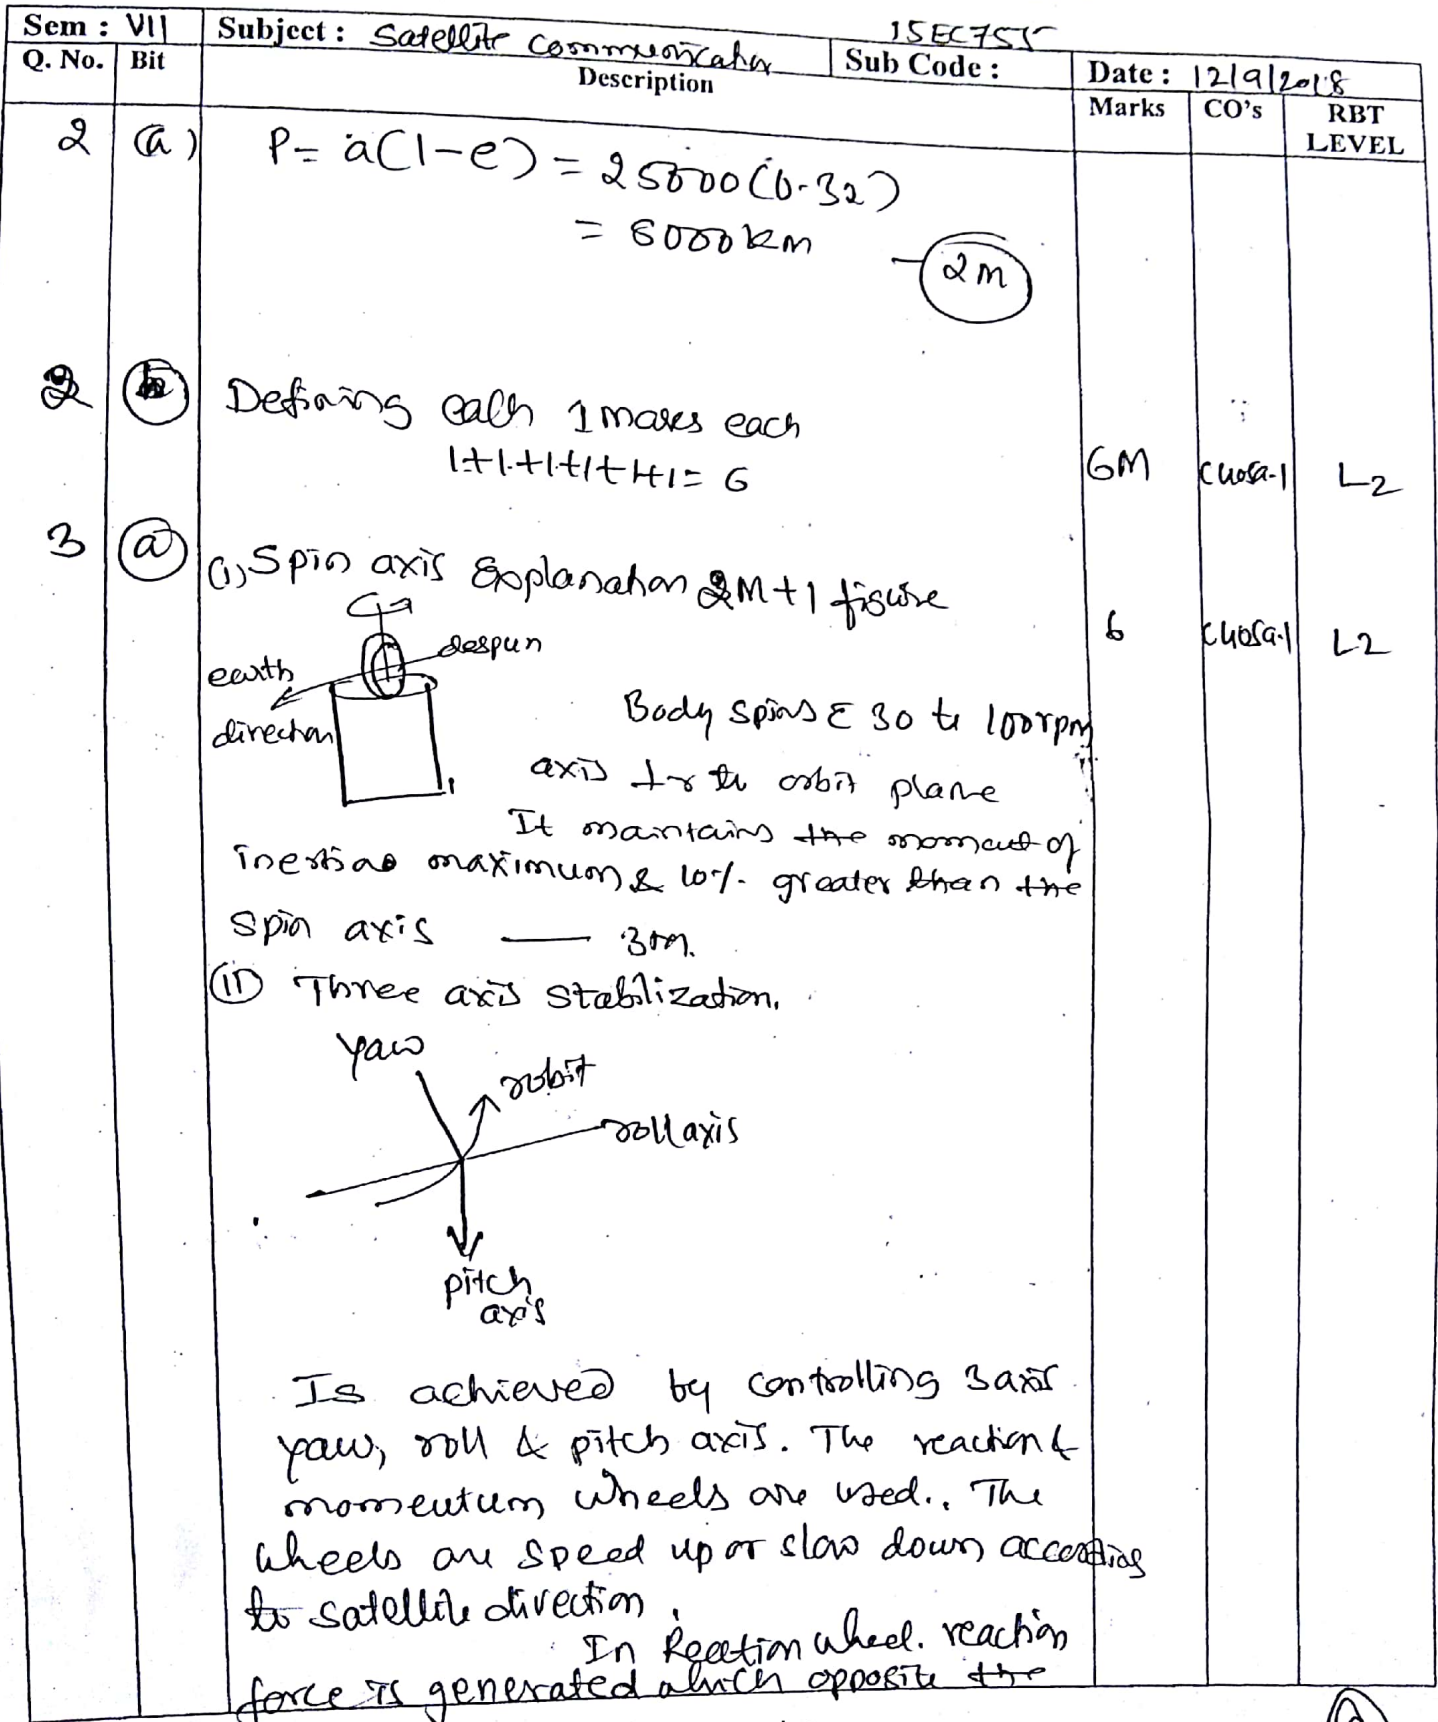 Sem : VII Subject : Satellite Communication Sub Code : 15EC755 Date : 12/9/2018
Q. No. Bit Description Marks CO's RBT LEVEL
2 (a) P = a(1-e) = 25000(0.32)
= 8000 km
- 2m
2 b Defining each 1 marks each
1+1+1+1+1+1= 6 6M L2
3 a (i) Spin axis Explanation 2M+1 figure
6 L2
despun
earth
direction
Body spins 30 to 100rpm
axis ⊥r to orbit plane
It maintains the moment of
inertia maximum & 10% greater than the
spin axis — 3m.
(ii) Three axis stabilization.
yaw
orbit
roll axis
pitch
axis
Is achieved by controlling 3 axis
yaw, roll & pitch axis. The reaction &
momentum wheels are used.. The
wheels are speed up or slow down according
to satellite direction.
In Reection wheel. reaction
force is generated which opposite the